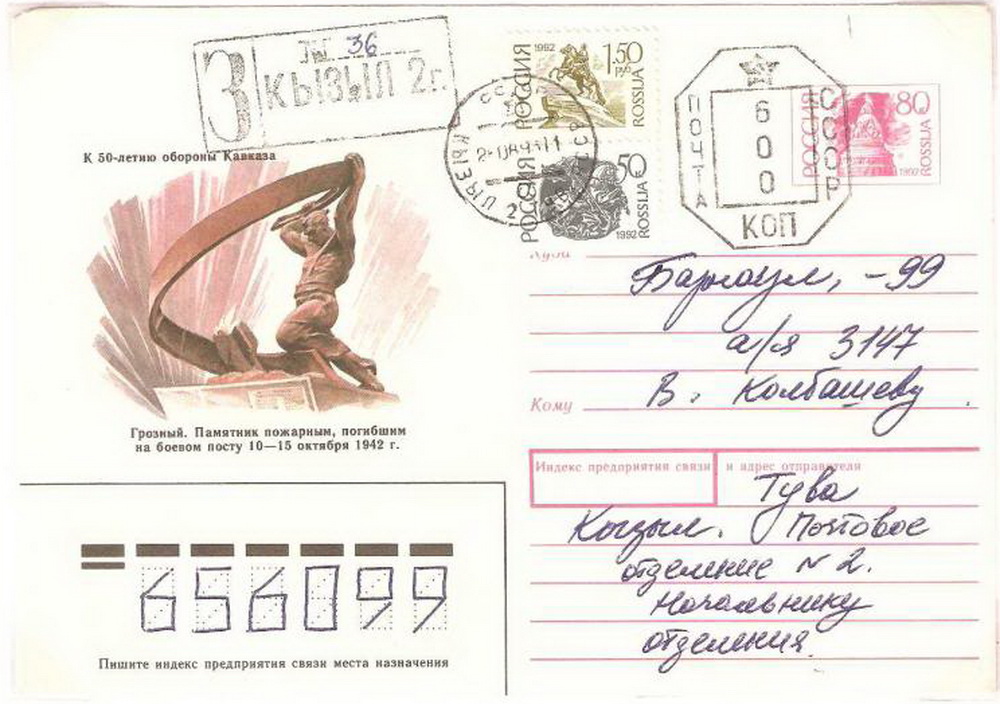 З
№ 36
КЫЗЫЛ 2г.
1992
1.50
РУБ
РОССИЯ
ROSSIJA
50
РОССИЯ
ROSSIJA
1992
СССР
ПОЧТА
600
КОП
РОССИЯ
80
ROSSIJA
1992
К 50-летию обороны Кавказа
Грозный. Памятник пожарным, погибшим
на боевом посту 10—15 октября 1942 г.
Куда
Барнаул, -99
а/я 3147
Кому В. Колбашеву
Индекс предприятия связи и адрес отправителя
Тува
Кызыл. Почтовое
отделение № 2.
Начальнику
отделения.
656099
Пишите индекс предприятия связи места назначения